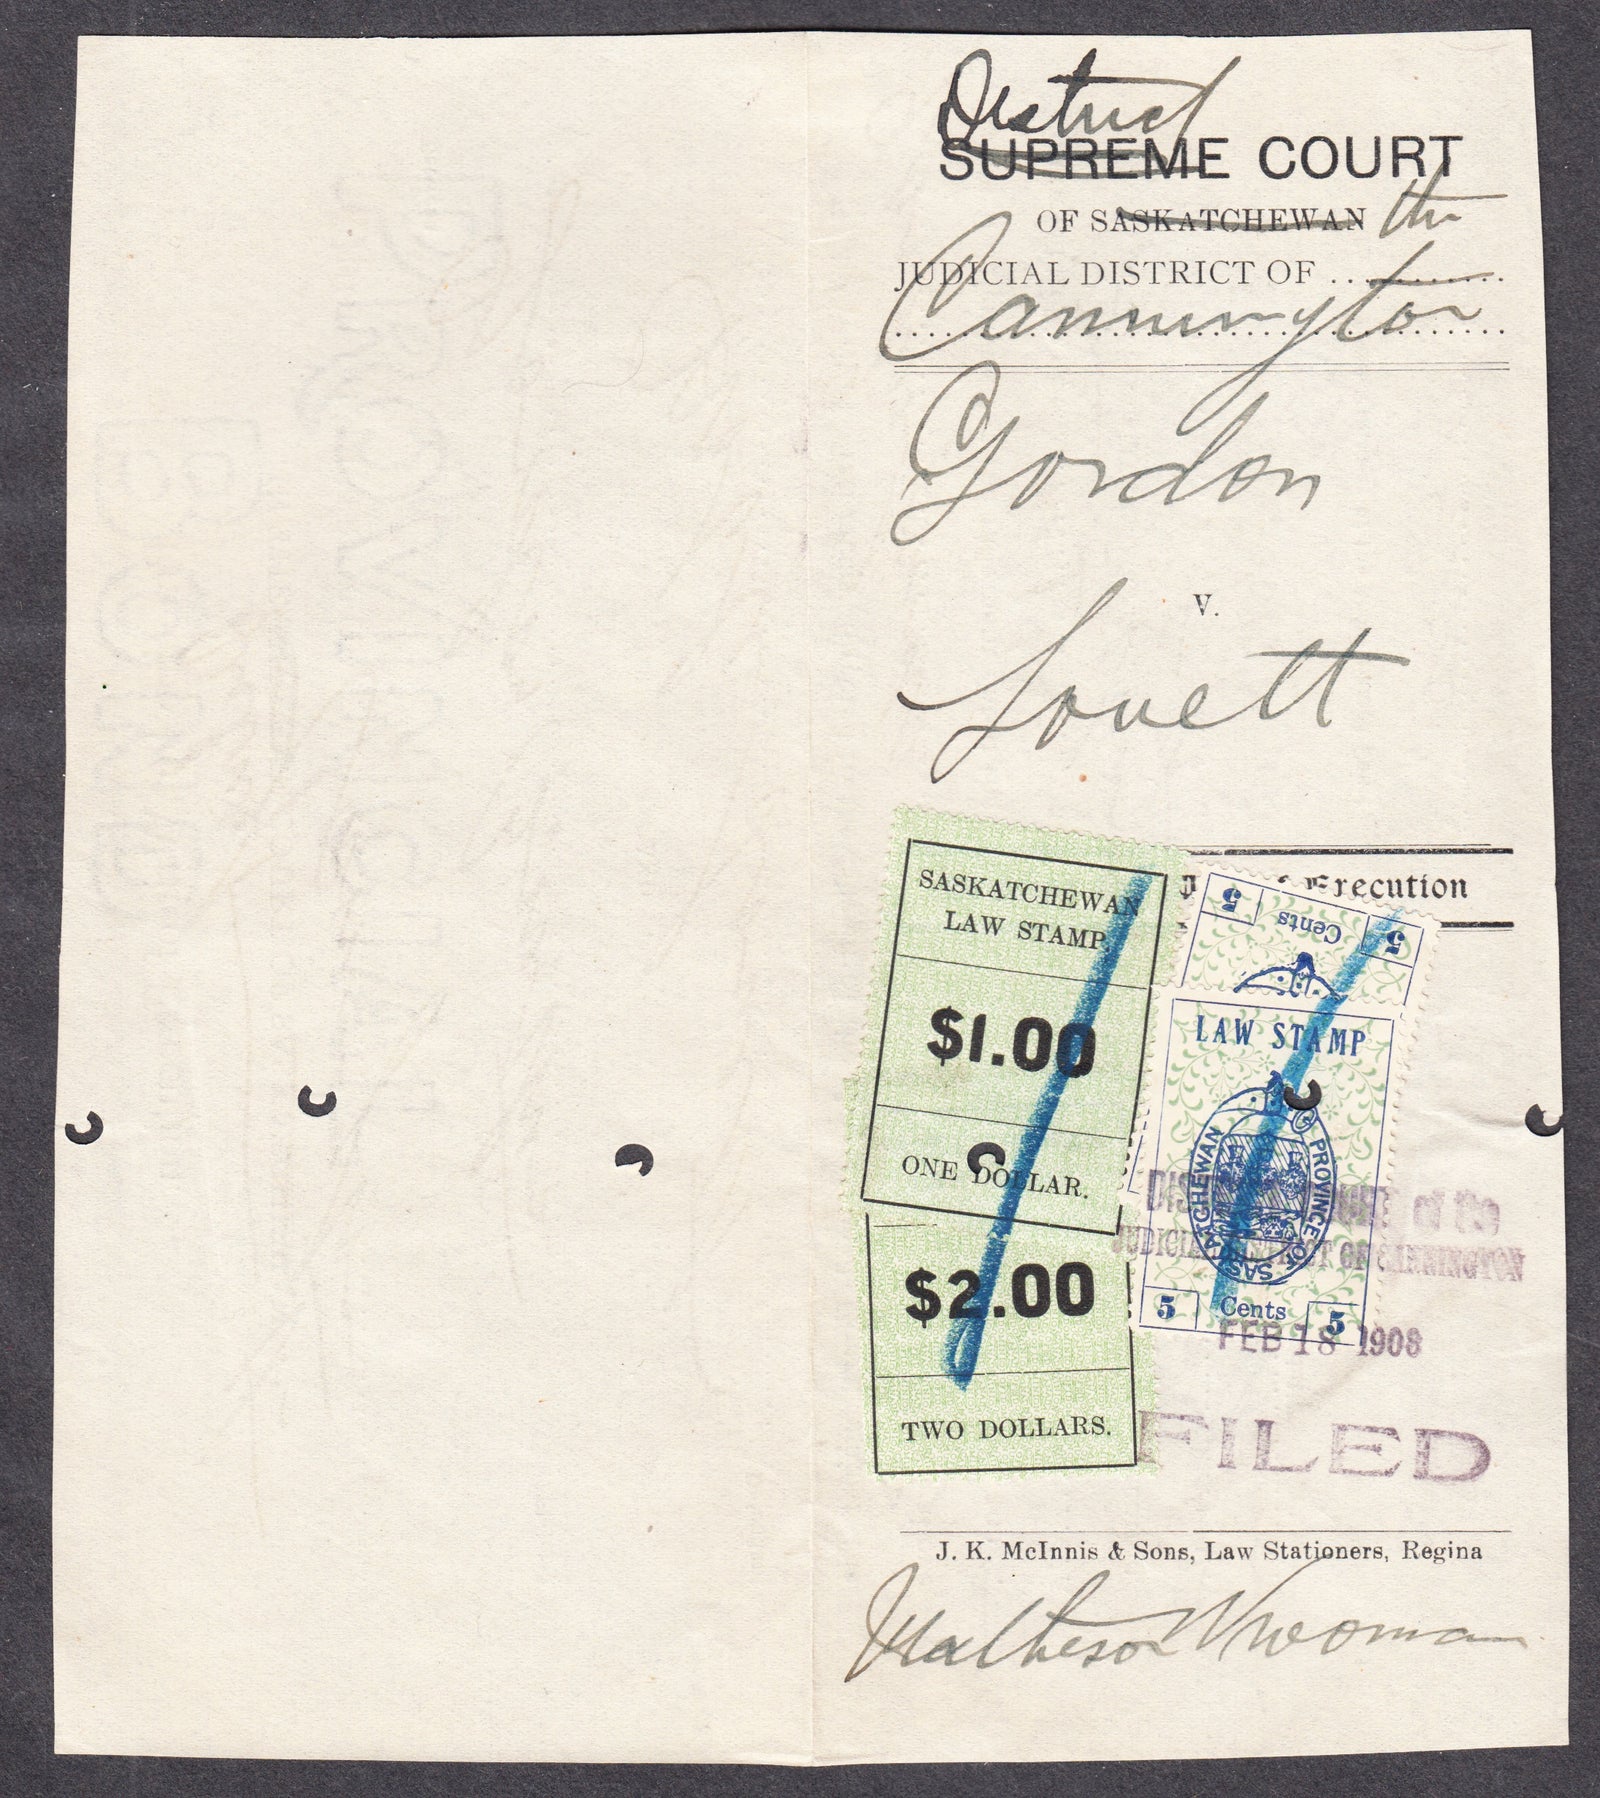 District
SUPREME COURT
OF SASKATCHEWAN the
JUDICIAL DISTRICT OF
Cannington
Gordon
V.
Lovett
Execution
SASKATCHEWAN
LAW STAMP.
$1.00
ONE DOLLAR.
$2.00
TWO DOLLARS.
5 Cents 5
LAW STAMP
PROVINCE OF SASKATCHEWAN
5 Cents 5
DISTRICT COURT of the
JUDICIAL DISTRICT OF CANNINGTON
FEB 18 1908
FILED
J. K. McInnis & Sons, Law Stationers, Regina
Matheson